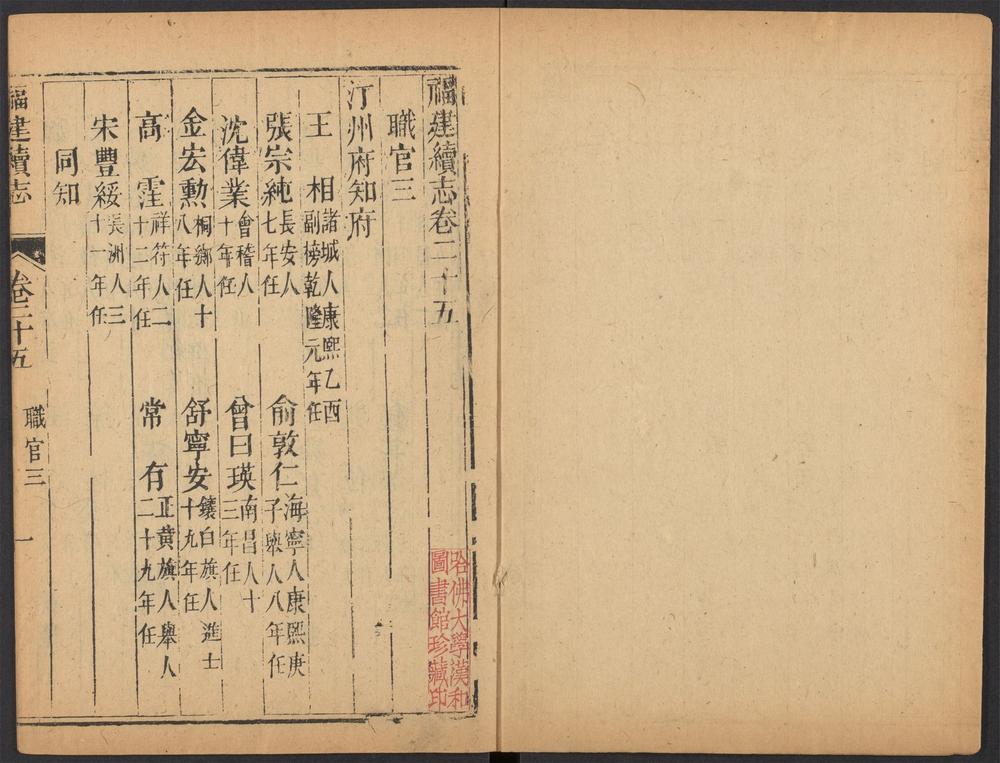 福建續志卷二十五
職官三
汀州府知府
王相 諸城人康熙乙酉副榜乾隆元年任
張宗純 長安人七年任 俞敦仁 海寧人康熙庚子舉人八年任
沈偉業 會稽人十年任 曾曰瑛 南昌人十三年任
金宏勳 桐鄉人十八年任 舒寧安 鑲白旗人進士十九年任
高霔 祥符人二十二年任 常有 正黄旗人舉人二十九年任
宋豐綏 長洲人三十一年任
同知
福建續志 卷二十五 職官三 一
哈佛大學漢和圖書館珍藏印